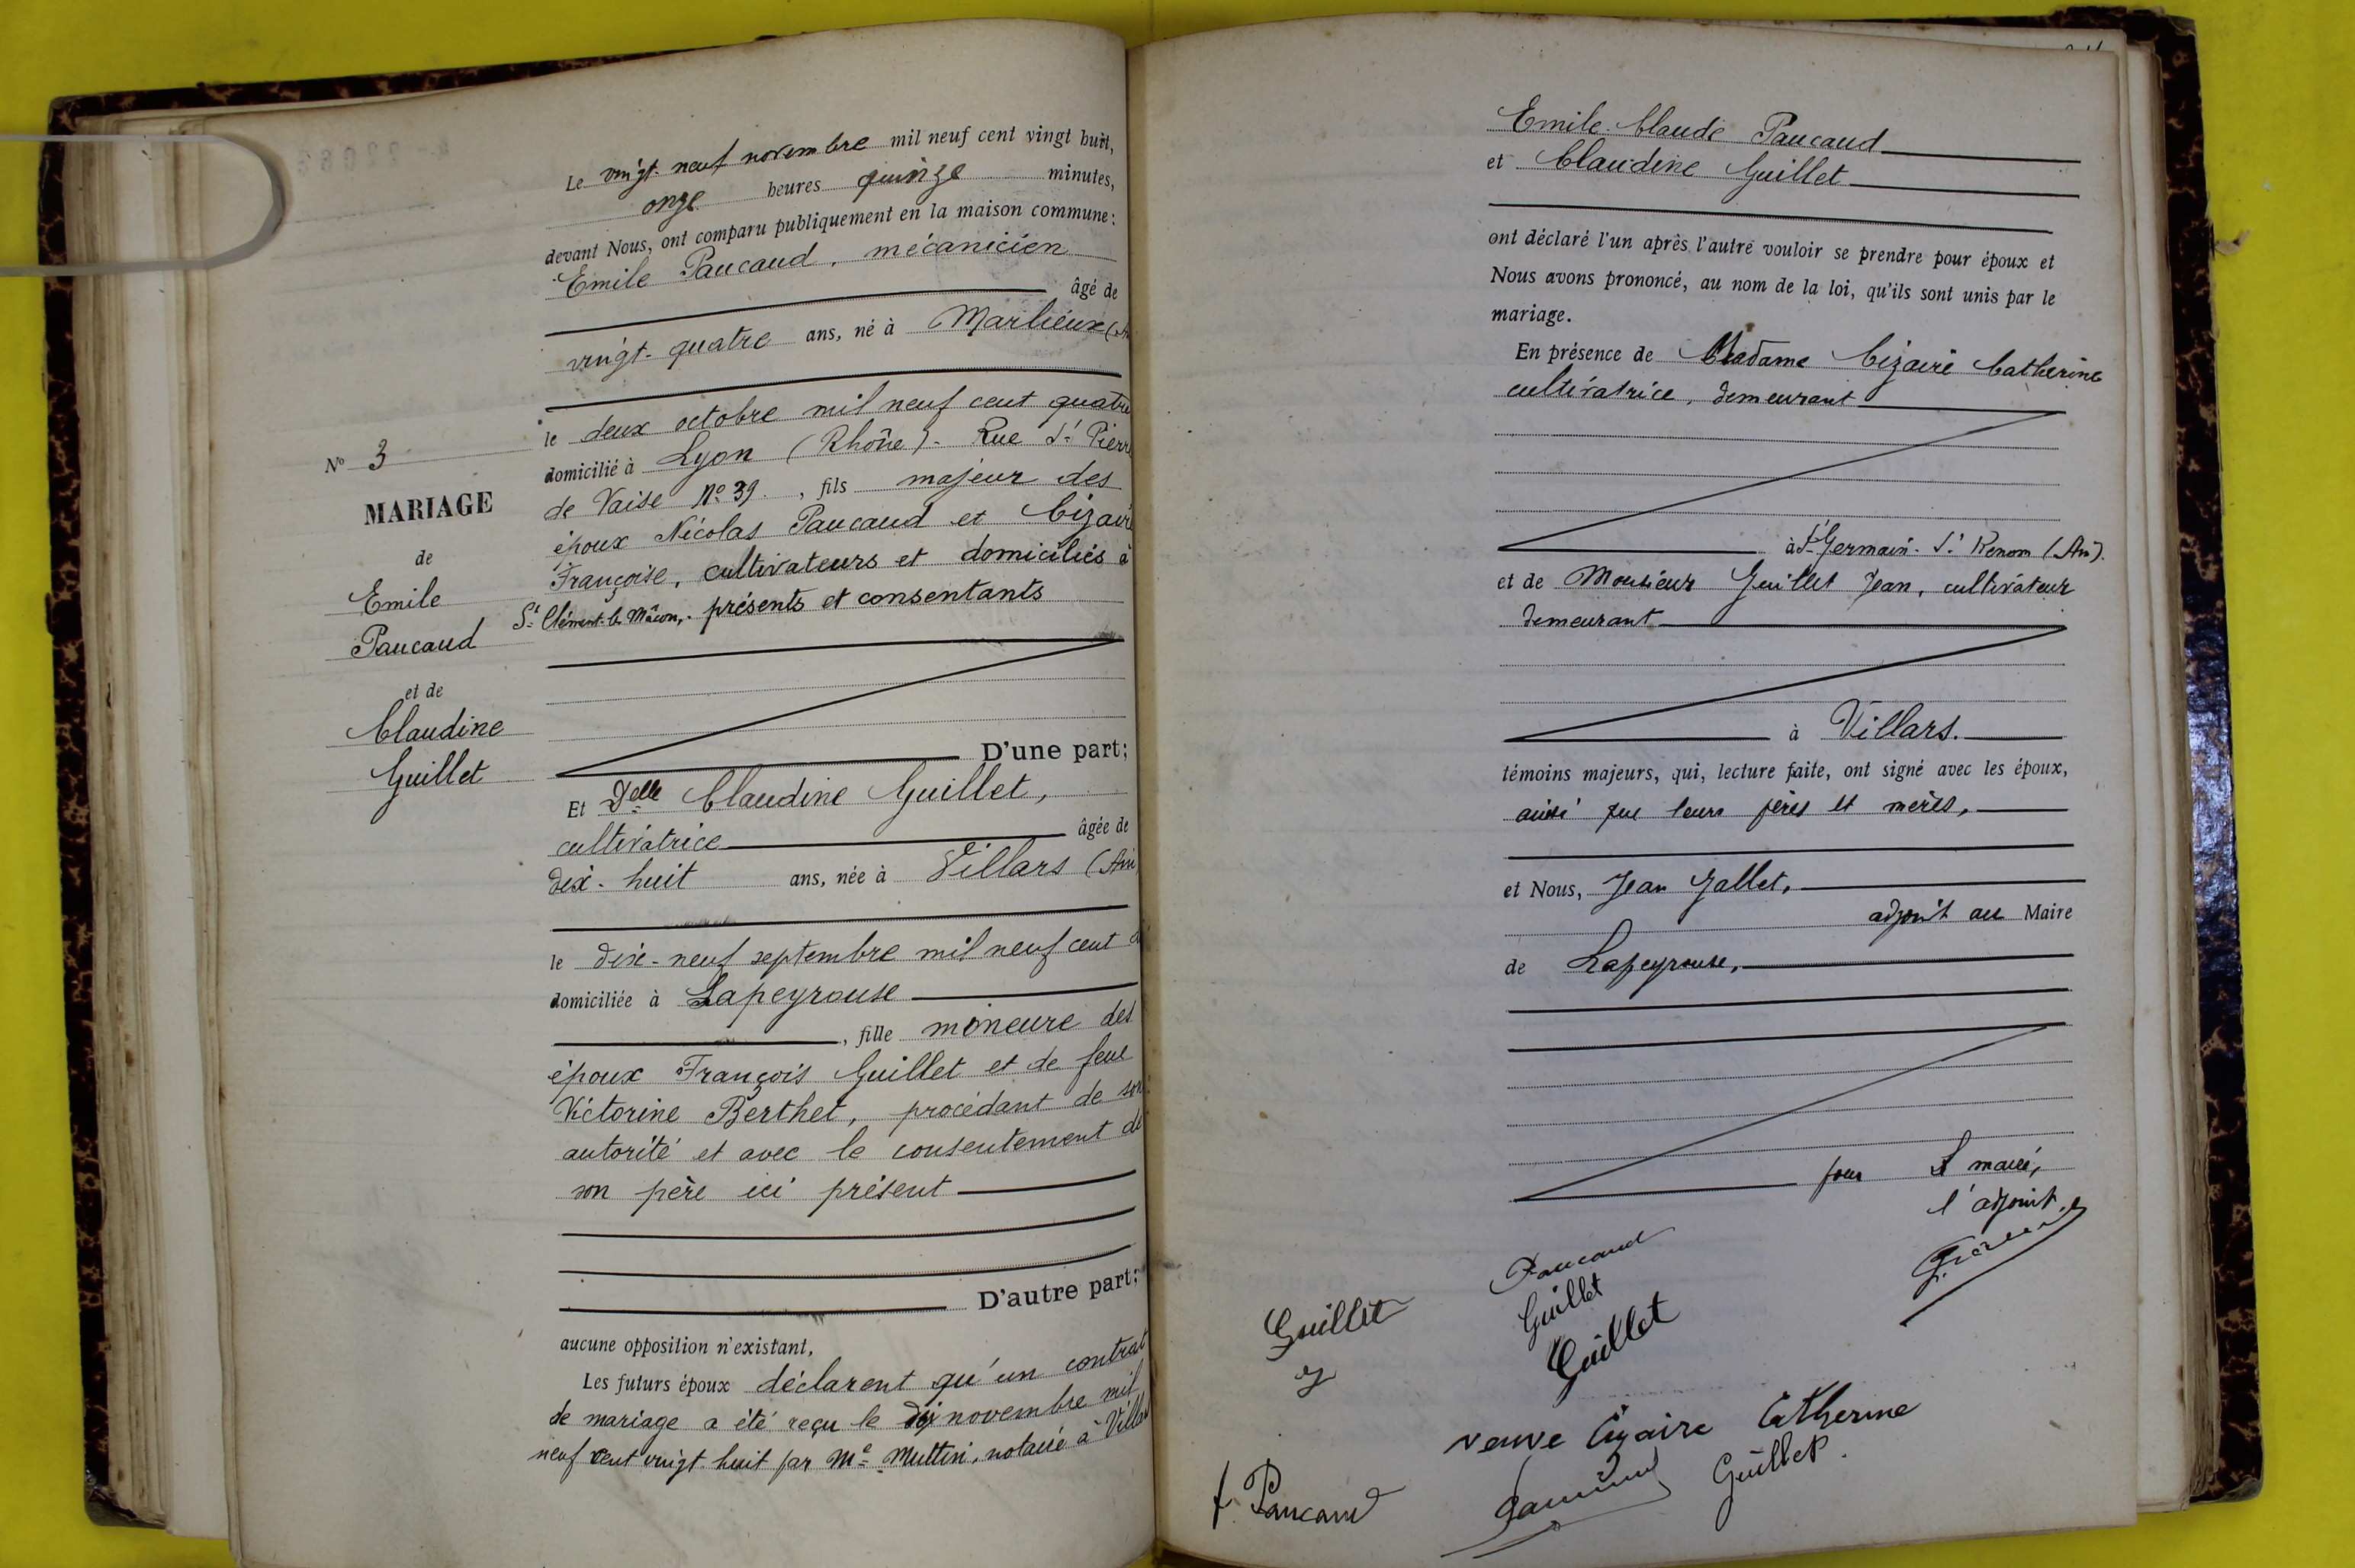 Le vingt-neuf novembre mil neuf cent vingt huit,
onze heures quinze minutes,
devant Nous, ont comparu publiquement en la maison commune:
Emile Paucaud, mécanicien
âgé de
vingt-quatre ans, né à Marlieux (A
le deux octobre mil neuf cent quatre
domicilié à Lyon (Rhône). Rue St Pierre
de Vaise No 39, fils majeur des
époux Nicolas Paucaud et Cizaire
Françoise, cultivateurs et domiciliés à
St Clément-les-Mâcon, présents et consentants
No 3
MARIAGE
de
Emile
Paucaud
et de
Claudine
Guillet
D'une part;
Et Delle Claudine Guillet,
cultivatrice âgée de
dix-huit ans, née à Villars (Ain
le dix-neuf septembre mil neuf cent d
domiciliée à Lapeyrouse
, fille mineure des
époux François Guillet et de feue
Victorine Berthet, procédant de son
autorité et avec le consentement de
son père ici présent
D'autre part;
aucune opposition n'existant,
Les futurs époux déclarent qu'un contrat
de mariage a été reçu le dix novembre mil
neuf cent vingt-huit par Me Muttin, notaire à Villars
Emile Claude Paucaud
et Claudine Guillet
ont déclaré l'un après l'autre vouloir se prendre pour époux et
Nous avons prononcé, au nom de la loi, qu'ils sont unis par le
mariage.
En présence de Madame Cizaire Catherine
cultivatrice, demeurant
à St Germain-St Renom (Ain).
et de Monsieur Guillet Jean, cultivateur
demeurant
à Villars.
témoins majeurs, qui, lecture faite, ont signé avec les époux,
ainsi que leurs pères et mères,
et Nous, Jean Gallet,
adjoint au Maire
de Lapeyrouse,
pour le maire,
l'adjoint.
Paucaud
Guillet
Guillet
Guillet
veuve Cizaire Catherine
Guillet
f. Paucaud